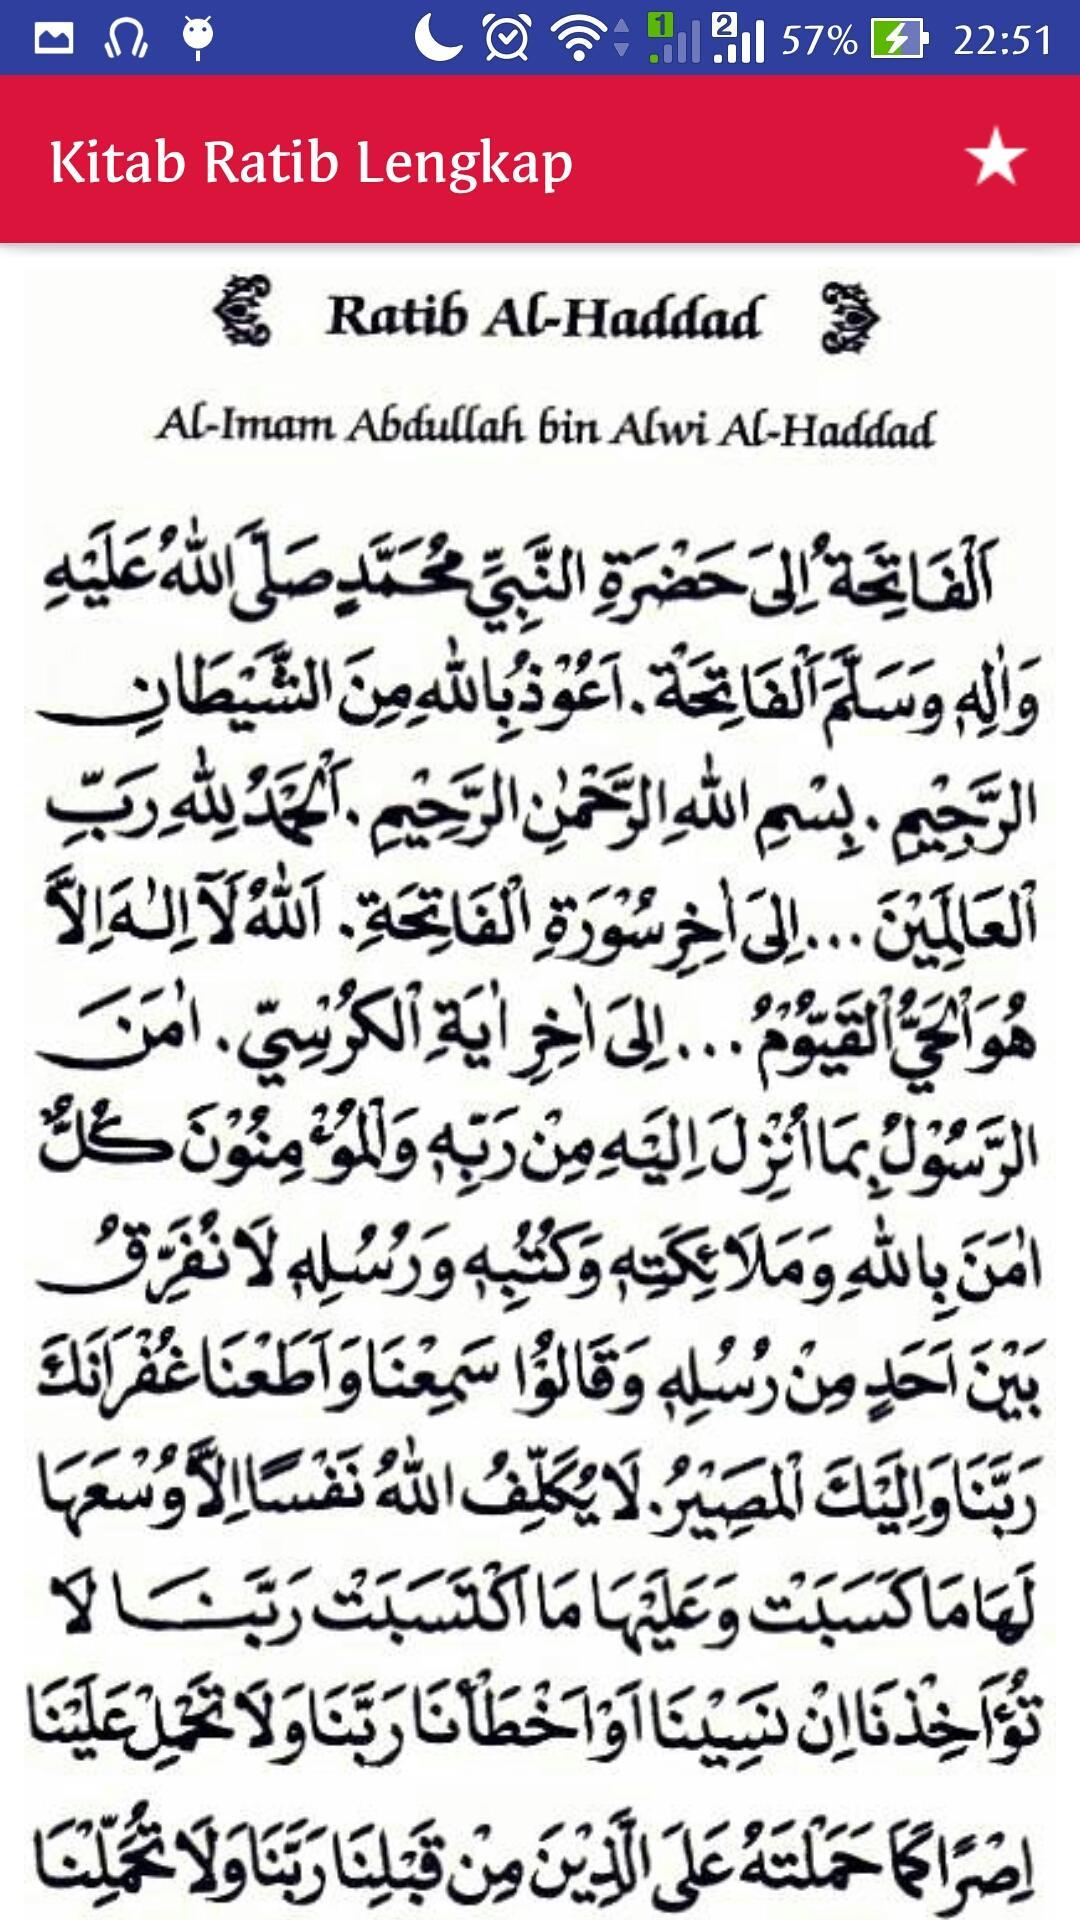 57% 22:51
Kitab Ratib Lengkap
Ratib Al-Haddad
Al-Imam Abdullah bin Alwi Al-Haddad
اَلْفَاتِحَةُ اِلَى حَضْرَةِ النَّبِيِّ مُحَمَّدٍ صَلَّى اللهُ عَلَيْهِ
وَاٰلِهٖ وَسَلَّمَ اَلْفَاتِحَةْ. اَعُوْذُ بِاللهِ مِنَ الشَّيْطَانِ
الرَّجِيْمِ. بِسْمِ اللهِ الرَّحْمٰنِ الرَّحِيْمِ. اَلْحَمْدُ لِلّٰهِ رَبِّ
الْعَالَمِيْنَ ... اِلَى اٰخِرِ سُوْرَةِ الْفَاتِحَةِ. اَللهُ لَآ اِلٰهَ اِلاَّ
هُوَ الْحَيُّ الْقَيُّوْمُ ... اِلَى اٰخِرِ اٰيَةِ الْكُرْسِيِّ. اٰمَنَ
الرَّسُوْلُ بِمَا اُنْزِلَ اِلَيْهِ مِنْ رَبِّهٖ وَالْمُؤْمِنُوْنَ كُلٌّ
اٰمَنَ بِاللهِ وَمَلَائِكَتِهٖ وَكُتُبِهٖ وَرُسُلِهٖ لَا نُفَرِّقُ
بَيْنَ اَحَدٍ مِنْ رُسُلِهٖ وَقَالُوْا سَمِعْنَا وَاَطَعْنَا غُفْرَانَكَ
رَبَّنَا وَاِلَيْكَ الْمَصِيْرُ. لَا يُكَلِّفُ اللهُ نَفْسًا اِلاَّ وُسْعَهَا
لَهَا مَا كَسَبَتْ وَعَلَيْهَا مَا اكْتَسَبَتْ رَبَّنَا لَا
تُؤَاخِذْنَا اِنْ نَسِيْنَا اَوْ اَخْطَأْنَا رَبَّنَا وَلَا تَحْمِلْ عَلَيْنَا
اِصْرًا كَمَا حَمَلْتَهُ عَلَى الَّذِيْنَ مِنْ قَبْلِنَا رَبَّنَا وَلَا تُحَمِّلْنَا